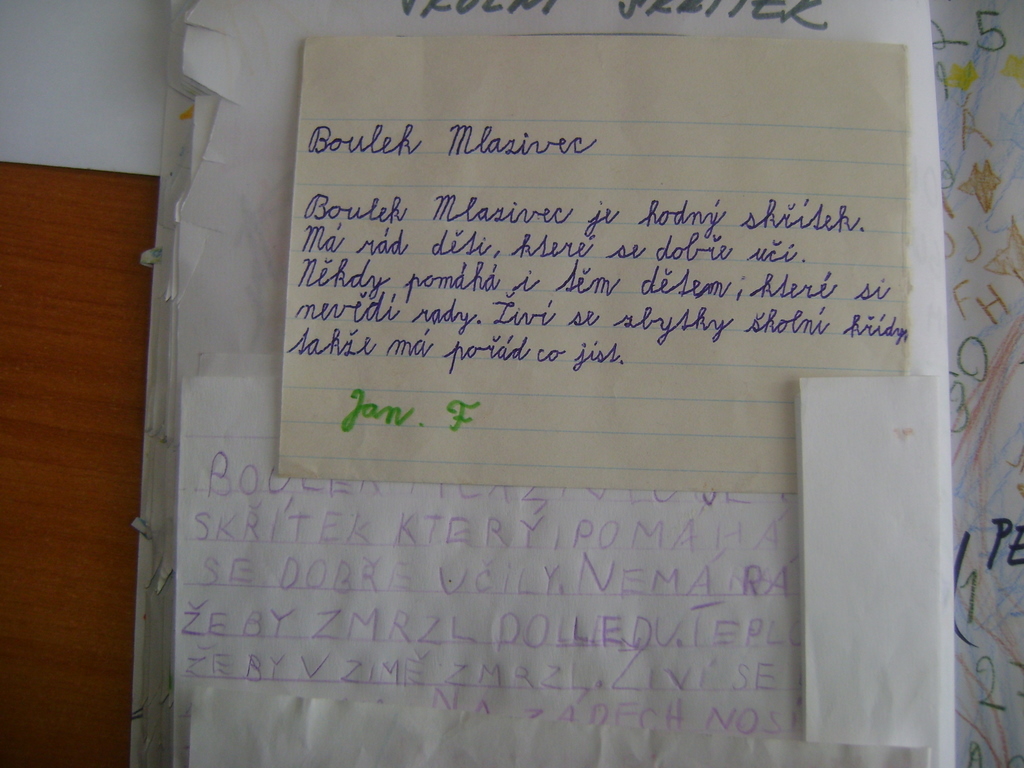 ŠKOLNÍ SKŘÍTEK
Boulek Mlazivec
Boulek Mlazivec je hodný skřítek.
Má rád děti, které se dobře učí.
Někdy pomáhá i těm dětem, které si
nevědí rady. Živí se zbytky školní křídy,
takže má pořád co jíst.
Jan. F
BOULEK
SKŘÍTEK KTERÝ, POMÁHÁ
SE DOBŘE UČILY. NEMÁ RÁ
ŽE BY ZMRZL DO LEDU. TEPLO
ŽE BY V ZIMĚ ZMRZL. ŽIVÍ SE
NA ZÁDECH NOSÍ
25
FH
0
3
PE
1
2